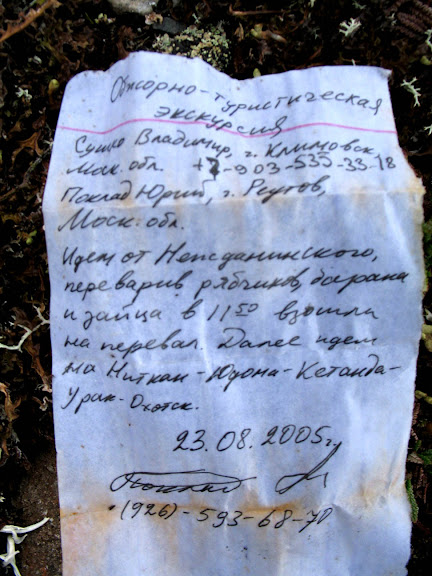 Обжорно-туристическая
экскурсия
Сушко Владимир, г. Климовск
Мск. обл. +7-903-535-33-18
Поклад Юрий, г. Реутов,
Моск. обл.
Идем от Нежданинского,
переварив рябчиков, барана
и зайца в 11 50 взошли
на перевал. Далее идем
на Ниткан-Юдома-Кетанда-
Урак-Охотск.
23.08.2005г.
Поклад
(926)-593-68-70